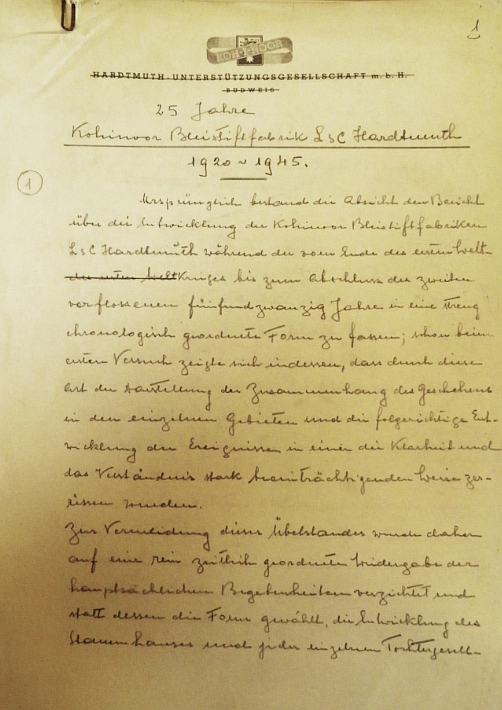 1
KOH-I-NOOR
HARDTMUTH-UNTERSTÜTZUNGSGESELLSCHAFT m. b. H.
BUDWEIS
25 Jahre
Kohinoor Bleistiftfabrik L&C Hardtmuth
1920 - 1945.
1
Ursprünglich bestand die Absicht den Bericht
über die Entwicklung der Kohinoor Bleistiftfabriken
L&C Hardtmuth während der vom Ende des ersten Welt-
des ersten Welt Krieges bis zum Abschluss des zweiten
verflossenen fünfundzwanzig Jahre in eine streng
chronologisch geordnete Form zu fassen; schon beim
ersten Versuch zeigte sich indessen, dass durch diese
Art der Darstellung der Zusammenhang des Geschehens
in den einzelnen Gebieten und die folgerichtige Ent-
wicklung der Ereignisse in einer die Klarheit und
das Verständnis stark beeinträchtigenden Weise zer-
rissen wurden.
Zur Vermeidung dieses Übelstandes wurde daher
auf eine rein zeitlich geordnete Wiedergabe der
hauptsächlichen Begebenheiten verzichtet und
statt dessen die Form gewählt, die Entwicklung des
Stammhauses und jeder einzelnen Tochtergesell-